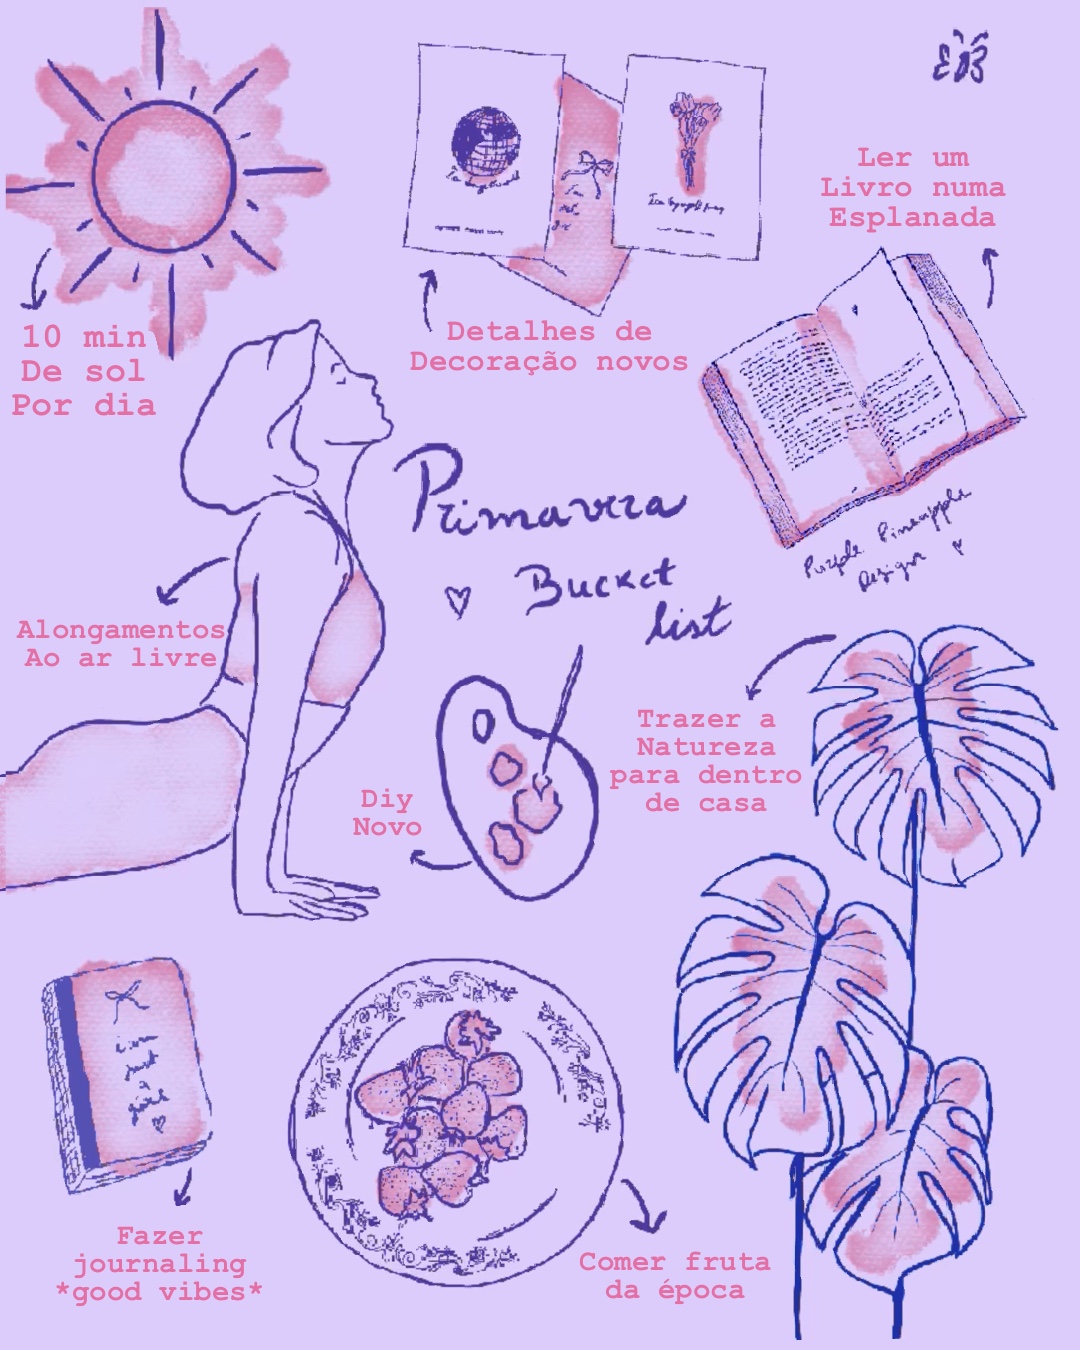 Ler um
Livro numa
Esplanada
10 min
De sol
Por dia
Detalhes de
Decoração novos
Primavera
Bucket
list
Purple Pineapple
Design
Alongamentos
Ao ar livre
Trazer a
Natureza
para dentro
de casa
Diy
Novo
just
a
girl
Fazer
journaling
*good vibes*
Comer fruta
da época